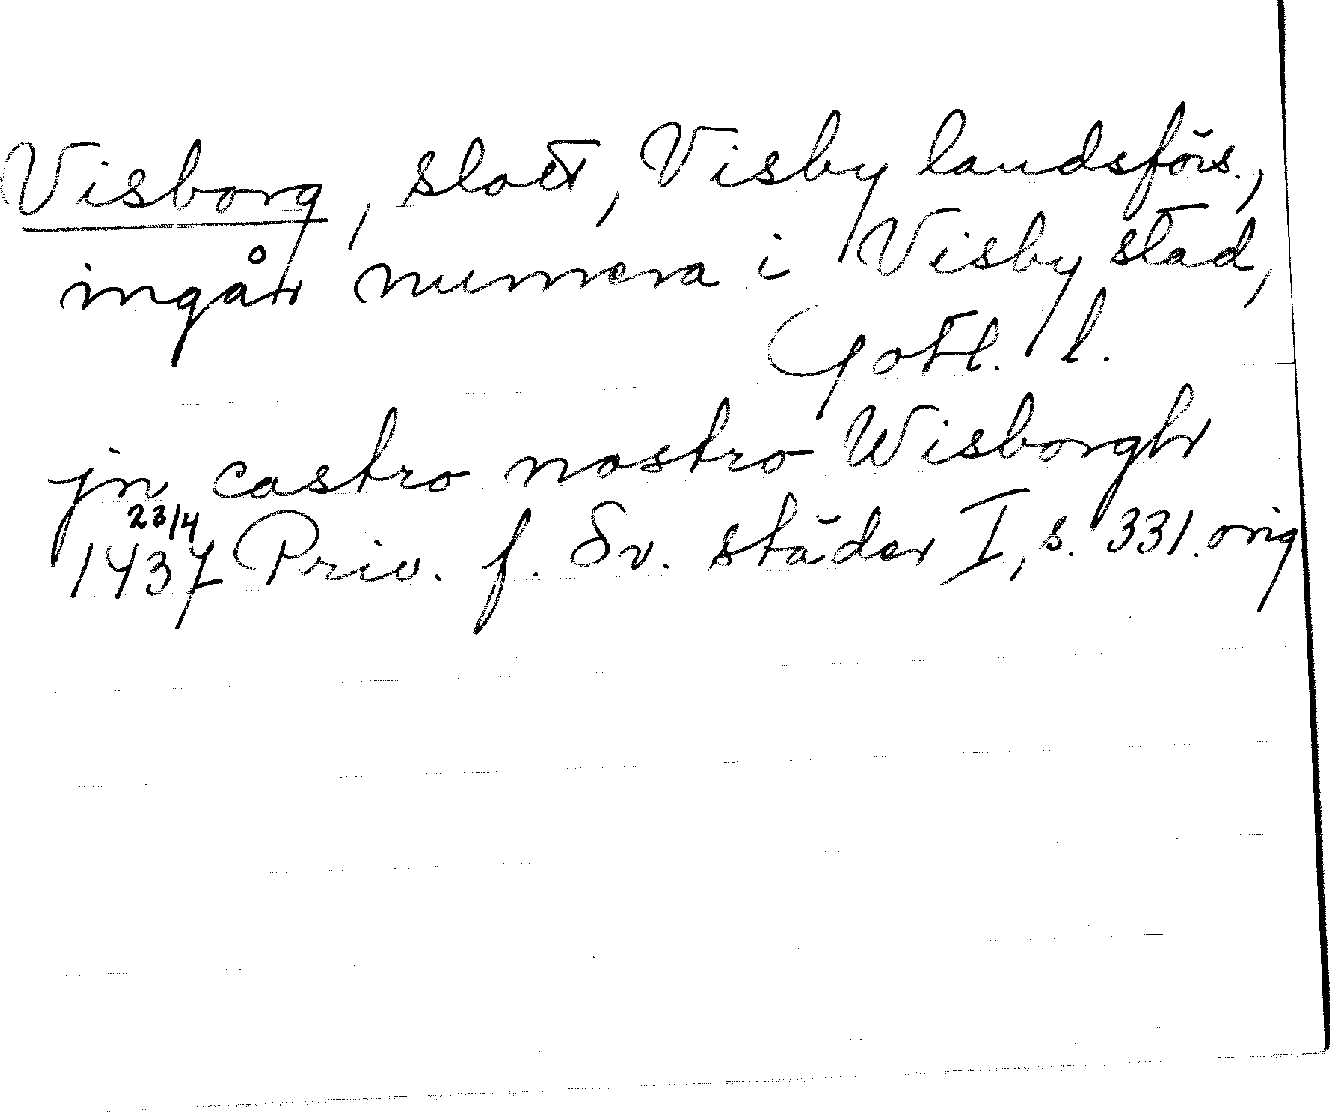 Visborg, slott, Visby landsförs.,
ingår numera i Visby stad,
Gotl. l.
jn castro nostro Wisborgh
23/4
1437 Priv. f. Sv. städer I, s. 331. orig